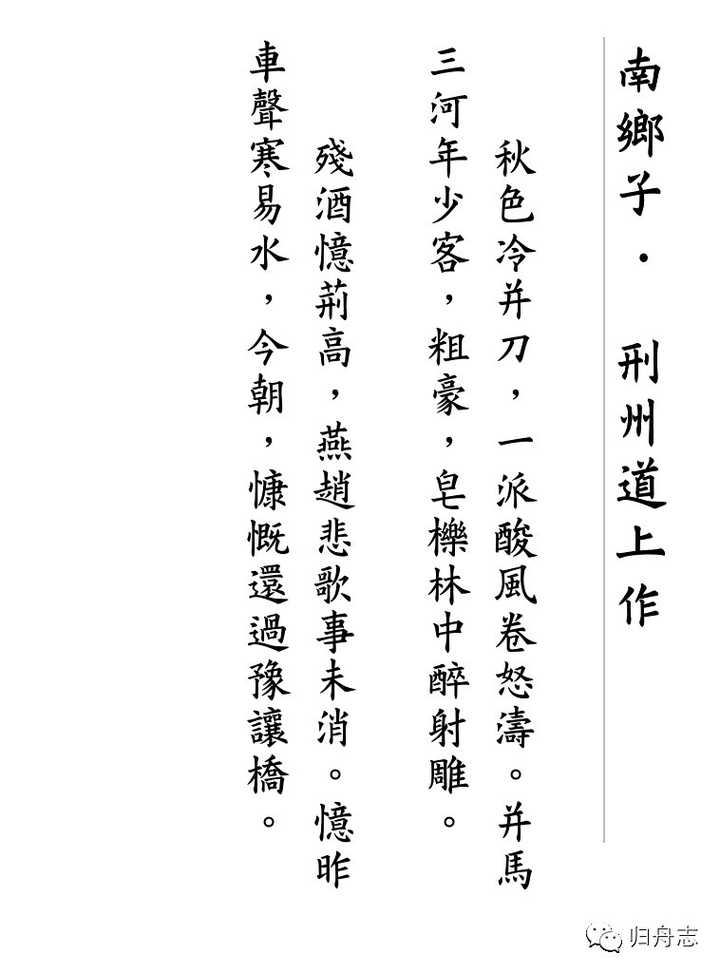 南鄉子· 刑州道上作
秋色冷并刀，一派酸風卷怒濤。并馬
三河年少客，粗豪，皂櫟林中醉射雕。
殘酒憶荊高，燕趙悲歌事未消。憶昨
車聲寒易水，今朝，慷慨還過豫讓橋。
归舟志